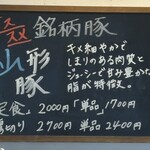 スス
メ
銘柄豚
山形
豚
キメ細やかで
しまりある肉質と
ジューシーで甘み豊かな
脂が特徴。
定食」2000円「単品」1700円
2700円 単品 2400円